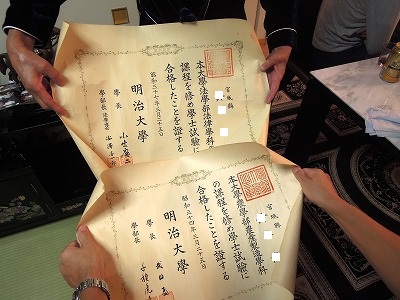 宮城縣
本大學法學部法律學科の
課程を修め學士試験に
合格したことを證する
昭和三十七年三月二十五日
明治大學
學長
學部長
宮城縣
本大學農學部農業製造學科
の課程を修め學士試験に
合格したことを證する
昭和三十四年三月二十五日
明治大學
學長
學部長